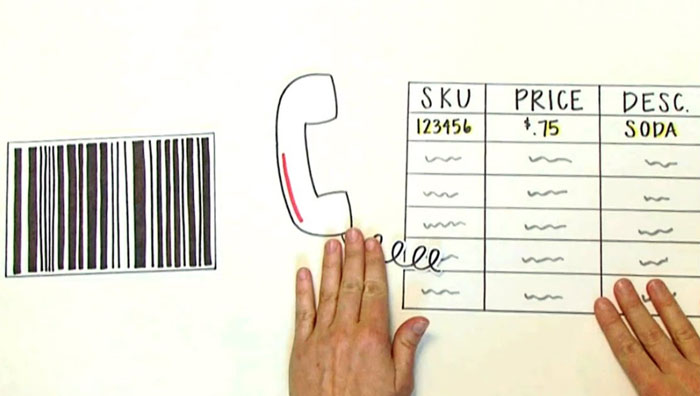 SKU PRICE DESC.
123456 $.75 SODA